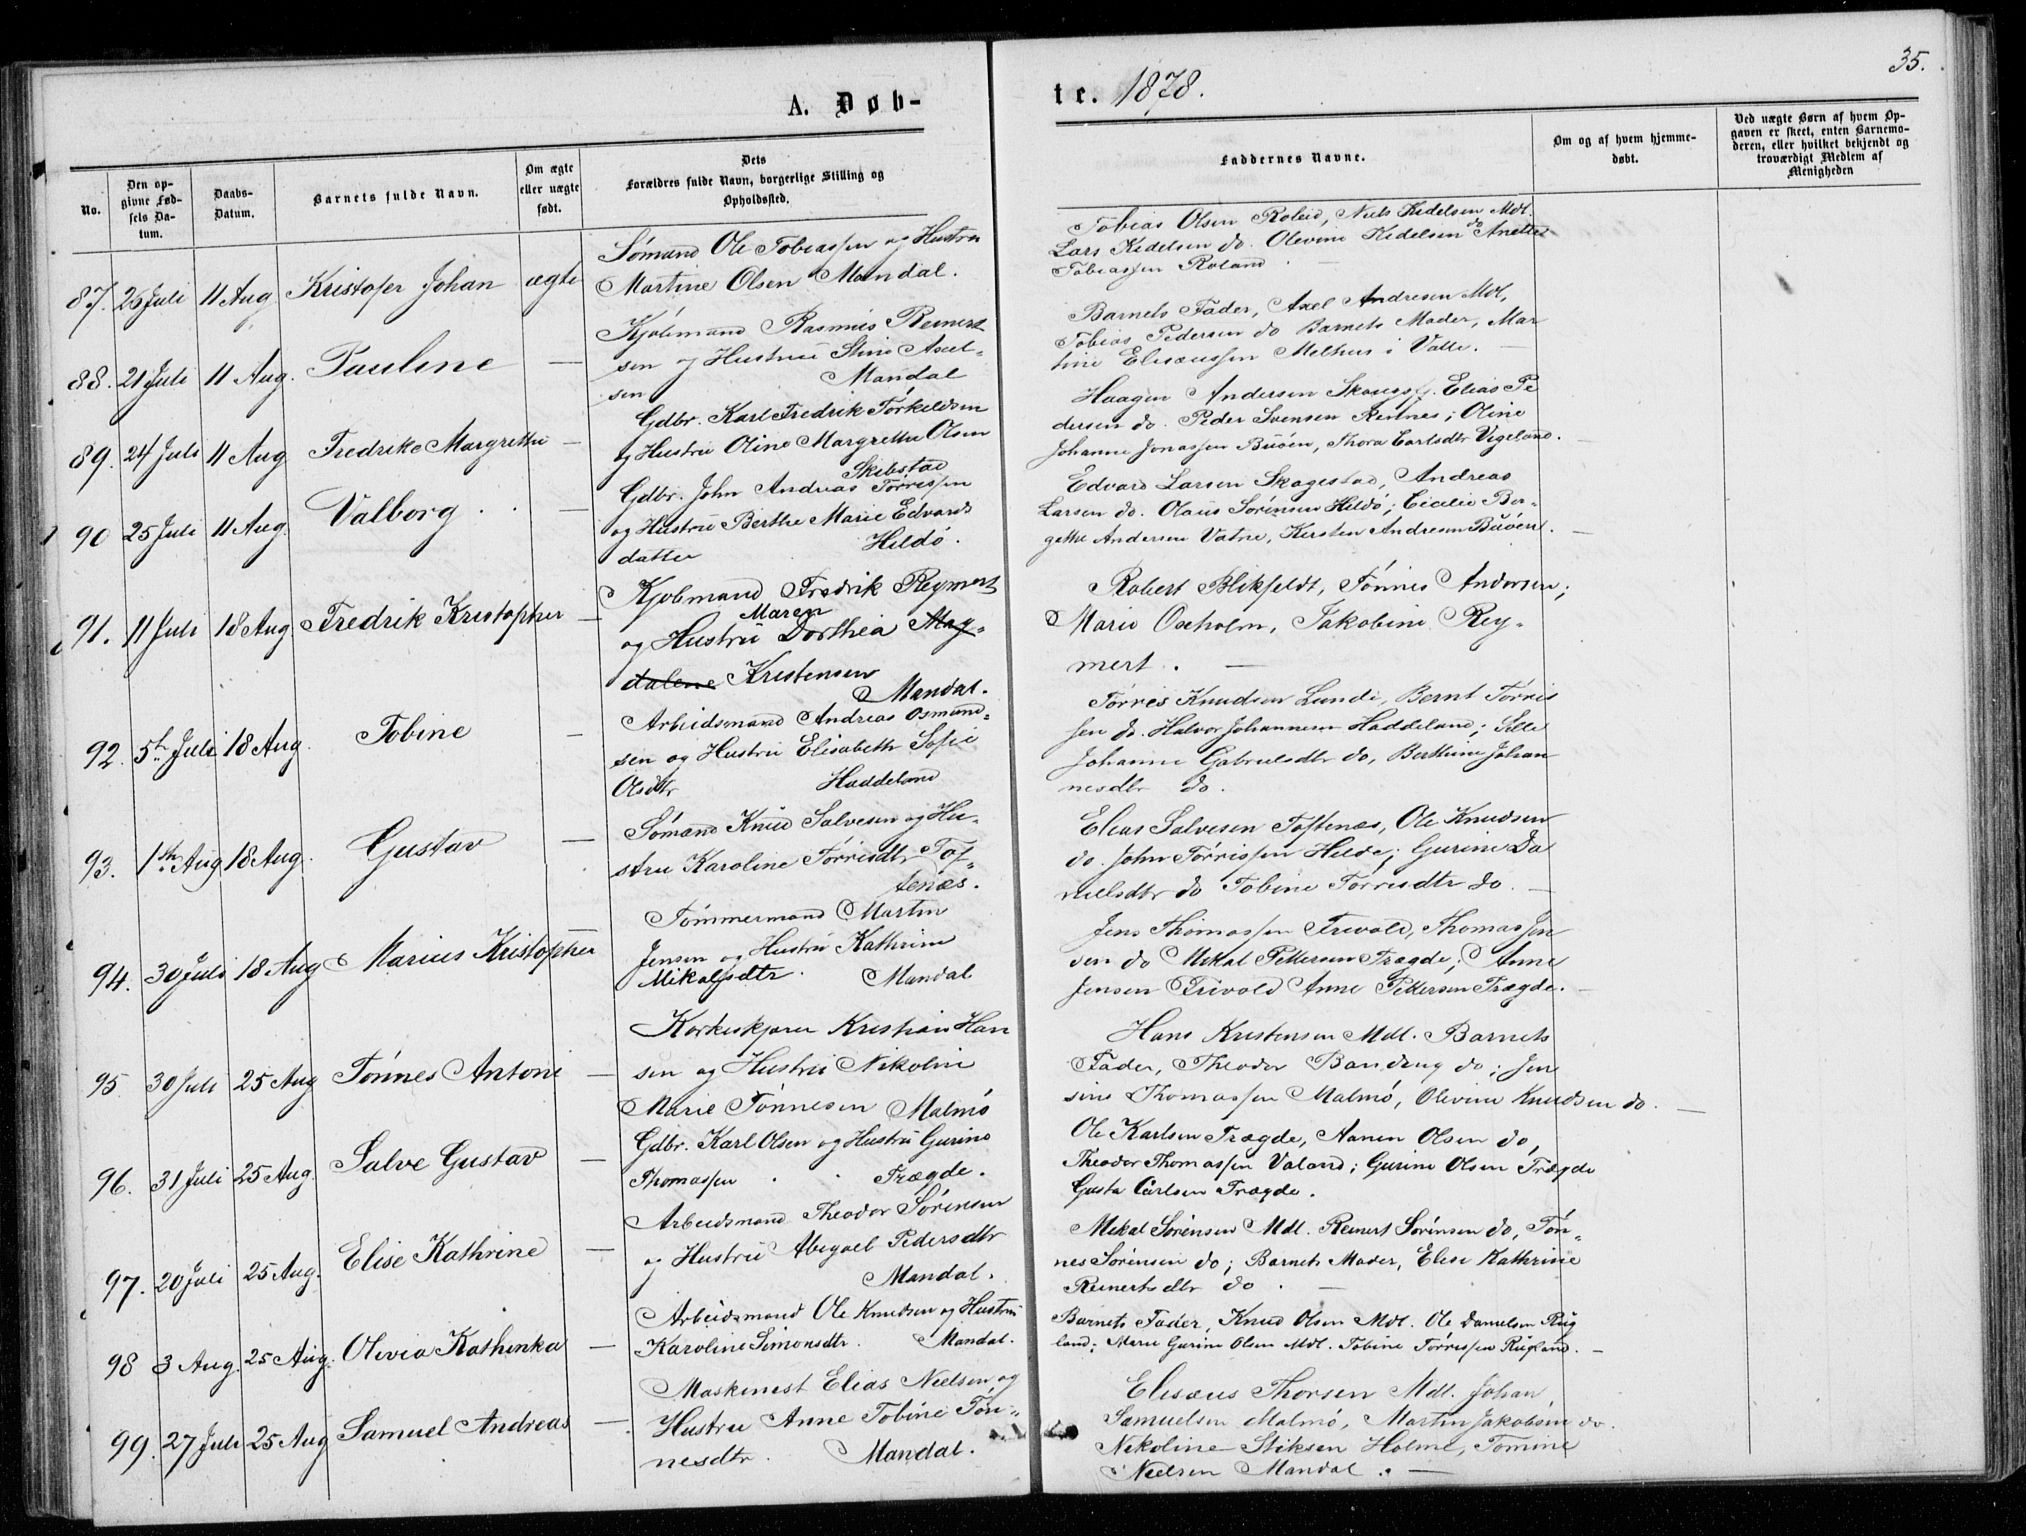 35.
A. Døb-
te. 1878.
No.
Den op-
givne Fød-
sels Da-
tum.
Daabs-
Datum.
Barnets fulde Navn.
Om ægte
eller uægte
født.
Dets
Forældres fulde Navn, borgerlige Stilling og
Opholdssted.
Faddernes Navne.
Om og af hvem hjemme-
døbt.
Ved uægte Børn af hvem Op-
gaven er skeet, enten Barnemo-
deren, eller hvilket bekjendt og
troværdigt Medlem af
Menigheden
87. 26 Juli 11 Aug Kristofer Johan ægte
Sømand Ole Tobiassen og Hustru
Martine Olsen Mandal.
Tobias Olsen Roland, Niels Kedelsen Mdl.
Lars Kedelsen do. Olevine Kedelsen do Anette
Tobiassen Roland. —
88. 21 Juli 11 Aug. Pauline —
Kjøbmand Rasmus Reinert
sen og Hustru Stine Axel-
sen Mandal
Barnets Fader, Axel Andresen Mdl,
Tobias Pedersen do Barnets Moder, Mar
tine Elisæussen Melhus i Valle. —
89. 24 Juli 11 Aug Fredrike Margrethe —
Gdbr. Karl Fredrik Torkeldsen
og Hustru Oline Margrethe Olsen
Skibstad
Haagen Andersen Skougsf. Elias Pe
dersen do. Peder Svensen Rennes; Oline
Johanne Jonassen Buøen, Thora Carlsdtr Vigeland. —
90 25 Juli 11 Aug. Valborg . . —
Gdbr. John Andreas Tørressen
og Hustru Berthe Marie Edvards
datter Hildø.
Edvard Larsen Skagestad, Andreas
Larsen do. Olaus Sørensen Hildø; Cicelie Ber-
gethe Andersen Vatne, Kersten Andresen Buøen. —
91. 11 Juli 18 Aug. Fredrik Kristopher —
Kjøbmand Fredrik Reymert
Maren
og Hustru Dorthea Mag-
dalene Kristensen
Mandal.
Robert Blikfeldt, Tønnes Andersen;
Marie Oxholm, Jakobine Rey-
mert. —
92. 5te Juli 18 Aug. Tobine —
Arbeidsmand Andreas Osmund-
sen og Hustru Elisabeth Sofie
Olsdtr Haddeland
Tørres Knudsen Lunde, Bernt Tørris
sen do. Halvor Johannesen Haddeland; Sille
Johanne Gabrielsdtr do, Berthine Johan
nesdtr do.
93. 1ste Aug 18 Aug. Gustav —
Sømand Knud Salvesen og Hu-
stru Karoline Tørrisdtr Tof-
tenæs.
Elias Salvesen Toftenæs, Ole Knudsen
do. John Tørrissen Hilde; Gurine Da
nielsdtr do Tobine Tørrisdtr do. —
94. 30 Juli 18 Aug Marius Kristopher
Tømmermand Martin
Jensen og Hustru Kathrine
Mikalsdtr. Mandal
Jens Thomassen Frivold, Thomas Jen
sen do Mekal Pettersen Trægde; Anne
Jensen Frivold Anne Pettersen Trægde. —
95 30 Juli 25 Aug Tønnes Antoni —
Korkeskjærer Kristian Han
sen og Hustru Nikoline
Marie Tønnesen Malmø
Hans Kristensen Mdl. Barnets
Fader, Theodor Bandrug do; Jen
sine Thomassen Malmø, Olevine Knudsen do. —
96. 31 Juli 25 Aug. Salve Gustav —
Gdbr. Karl Olsen og Hustru Gurine
Thomassen . . Trægde.
Ole Karlsen Trægde, Aanen Olsen do,
Theodor Thomassen Valand; Gurine Olsen Trægde
Gusta Carlsen Trægde.
97. 20 Juli 25 Aug. Elise Kathrine —
Arbeidsmand Theodor Sørensen
og Hustru Abigael Pedersdtr
Mandal.
Mekal Sørensen Mdl. Reinert Sørensen do, Tøn-
nes Sørensen do; Barnets Moder, Elise Kathrine
Reinertsdtr do. —
98 3 Aug. 25 Aug. Olivia Kathinka —
Arbeidsmand Ole Knudsen og Hustru
Karoline Simonsdtr. Mandal.
Barnets Fader, Knud Olsen Mdl. Ole Danielsen Rug
land; Marie Gurine Olsen Mdl. Tobine Tørressen Rugland. —
99. 27 Juli 25 Aug Samuel Andreas —
Maskinest Elias Nielsen og
Hustru Anne Tobine Tøn-
nesdtr. Mandal.
Elisæus Thorsen Mdl. Johan
Samuelsen Malmø, Martin Jakobsen do.
Nekoline Stiksen Holme, Tomine
Nielsen Mandal. —